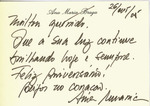 Ana Maria Braga
26/
Milton querido,
Que a sua luz continue
brilhando hoje e sempre.
Feliz aniversário.
Beijos no coração,
Ana Maria